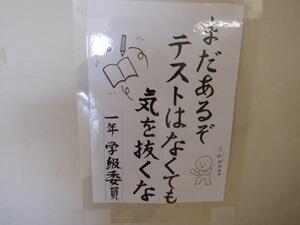 まだあるぞ
テストはなくても
気を抜くな
一年 学級委員